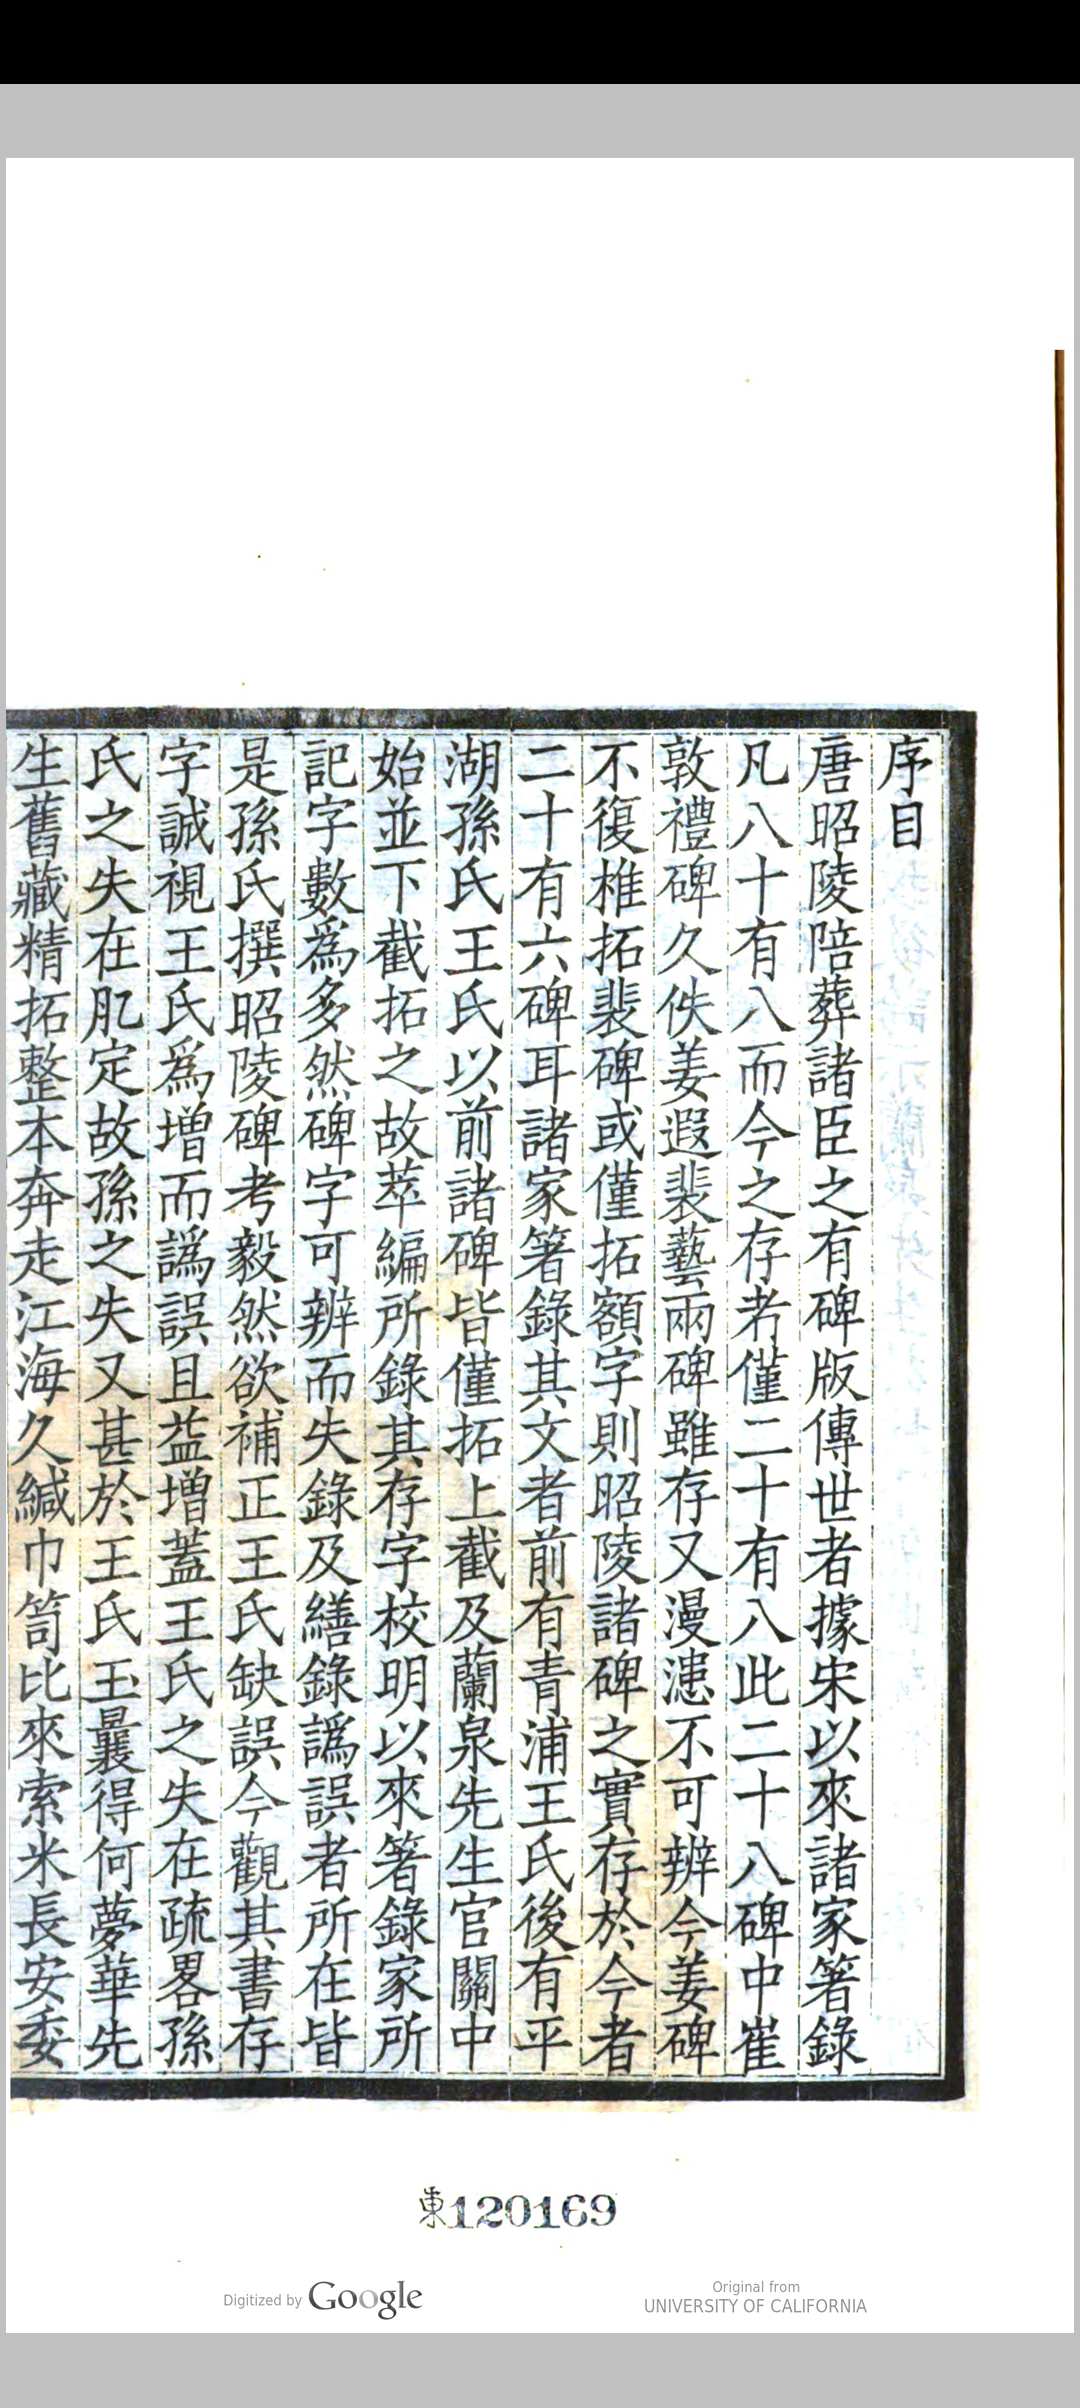 序目
唐昭陵陪葬諸臣之有碑版傳世者據宋以來諸家箸錄
凡八十有八而今之存者僅二十有八此二十八碑中崔
敦禮碑久佚姜遐裴藝兩碑雖存又漫漶不可辨今姜碑
不復椎拓裴碑或僅拓額字則昭陵諸碑之實存於今者
二十有六碑耳諸家箸錄其文者前有青浦王氏後有平
湖孫氏王氏以前諸碑皆僅拓上截及蘭泉先生官關中
始並下截拓之故萃編所錄其存字校明以來箸錄家所
記字數爲多然碑字可辨而失錄及繕錄譌誤者所在皆
是孫氏撰昭陵碑考毅然欲補正王氏缺誤今觀其書存
字誠視王氏爲增而譌誤且益增蓋王氏之失在疏畧孫
氏之失在肊定故孫之失又甚於王氏玉曩得何夢華先
生舊藏精拓整本奔走江海久緘巾笥比來索米長安委
東120169
Digitized by Google
Original from
UNIVERSITY OF CALIFORNIA